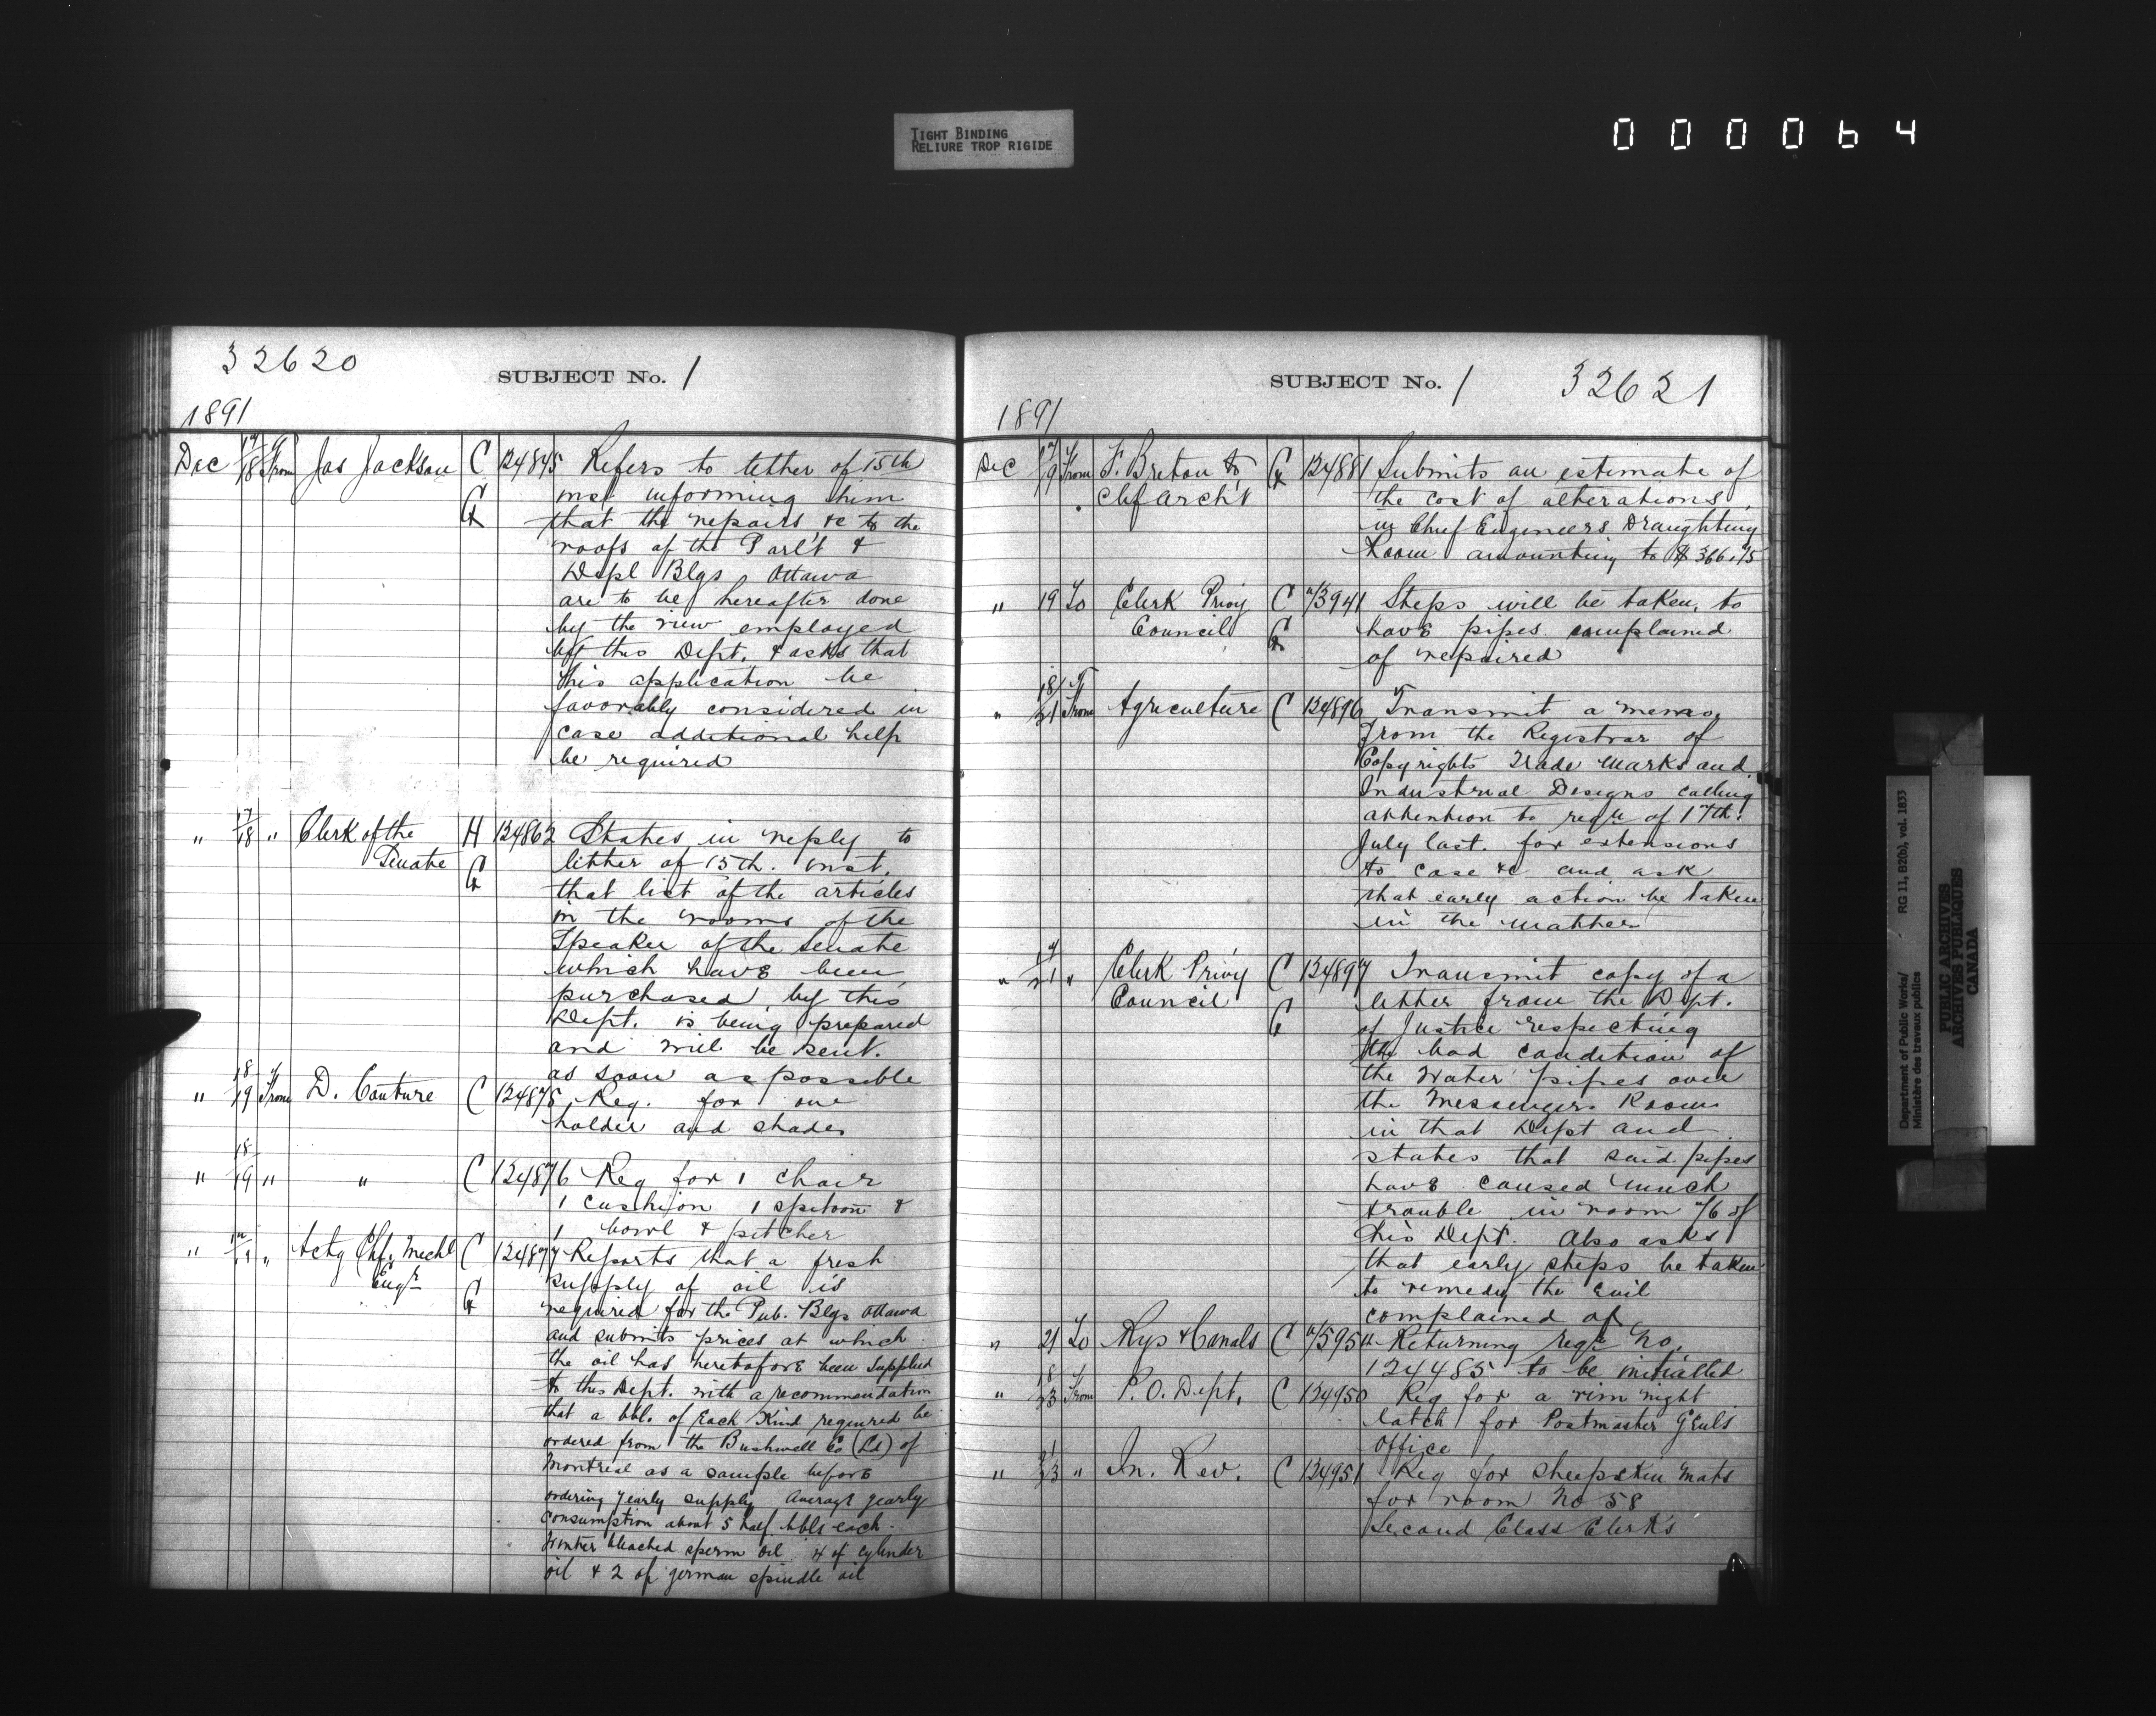 TIGHT BINDING
RELIURE TROP RIGIDE
000064
32620
SUBJECT No. 1
1891
Dec 17/18 From Jas Jackson C 124845 Refers to letter of 15th
inst informing him
that the repairs &c to the
roofs of the Parl't &
Deptl Blgs, Ottawa
are to be hereafter done
by the men employed
by this Dept. & asks that
his application be
favorably considered in
case additional help
be required
" 17/18 " Clerk of the Senate H 124862 States in reply to
letter of 15th. inst.
that list of the articles
in the rooms of the
Speaker of the Senate
which have been
purchased by this
Dept. is being prepared
and will be sent.
as soon as possible
" 18/19 From D. Couture C 124875 Req. for one
holder and shade.
" 18/19 " " C 124876 Req for 1 chair
1 cushion 1 spitoon &
1 bowl & pitcher
" " Actg Chf. Mechl Engr C 124877 Reports that a fresh
supply of oil is
required for the Pub. Blgs Ottawa
and submits prices at which
the oil has heretofore been supplied
to this Dept. with a recommendation
that a bbl. of Each Kind required be
ordered from the Bushnell Co (Ld) of
Montreal as a sample before
ordering yearly supply Average yearly
consumption about 5 half bbls each.
Winter bleached sperm oil 4 of cylinder
oil & 2 of german spindle oil
SUBJECT No. 1
32621
1891
Dec 17/19 From F. Breton to Chf Arch't 124881 Submits an estimate of
the cost of alterations
in Chief Engineers Draughting
Room amounting to $366.75
" 19 To Clerk Privy Council C 3941 Steps will be taken, to
have pipes complained
of repaired
" 18/21 From Agriculture C 124896 Transmit a memo.
from the Registrar of
Copyrights Trade Marks and
Industrial Designs calling
attention to reqn of 17th.
July last. for extensions
to case &c and ask
that early action be taken
in the matter
" " Clerk Privy Council C 124897 Transmit copy of a
letter from the Dept.
of Justice respecting
the bad condition of
the Water pipes over
the Messengers Room
in that Dept and
states that said pipes
have caused much
trouble in room of
his Dept. Also asks
that early steps be taken
to remedy the Evil
complained of
" 21 To Rys & Canals C Returning reqn No.
124485 to be initialled
" 18/23 From P. O. Dept. C 124950 Req for a rim night
latch for Postmaster GEnls
Office
" 21/23 " In. Rev. C 124951 Req for sheepskin mats
for room No 58
Second Class Clerks
Department of Public Works/ RG 11, B2(b), vol. 1833
Ministère des travaux publics
PUBLIC ARCHIVES
ARCHIVES PUBLIQUES
CANADA